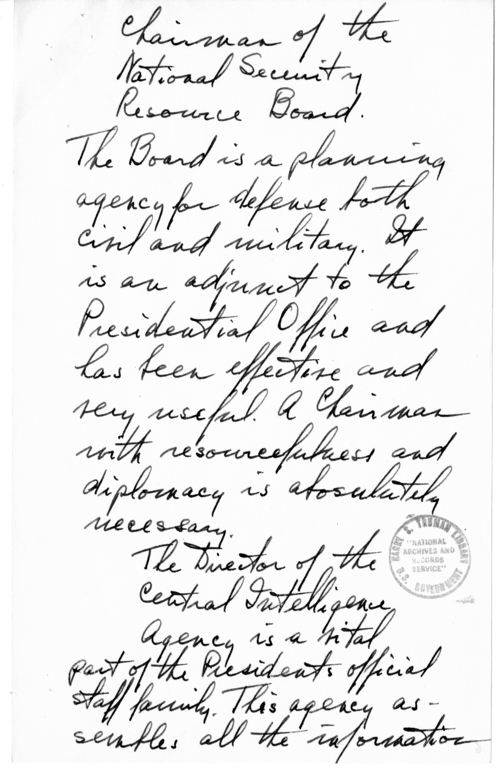 Chairman of the
National Security
Resource Board.
The Board is a planning
agency for defense both
civil and military. It
is an adjunct to the
Presidential Office and
has been effective and
very useful. A Chairman
with resourcefulness and
diplomacy is abosulutely
necessary.
HARRY S. TRUMAN LIBRARY
"NATIONAL
ARCHIVES AND
RECORDS
SERVICE"
U.S. GOVERNMENT
The Director of the
Central Intelligence
Agency is a vital
part of the Presidents official
staff family. This agency as-
sembles all the information